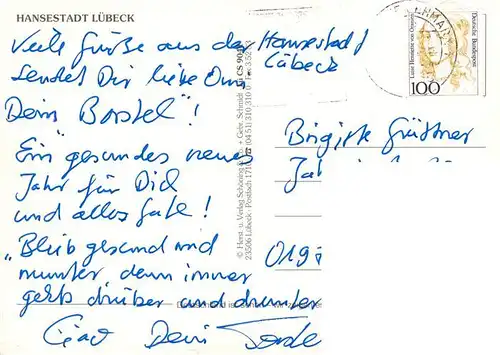 HANSESTADT LÜBECK
Viele Grüße aus der Hansestadt
Lübeck
sendet Dir liebe Oma
Dein "Borstel"!
Ein gesundes neues
Jahr für Dich
und alles Gute!
"Bleib gesund und
munter, denn immer
geht's drüber und drunter
Ciao Dein
© Herst. u. Verlag Schöning & Co. + Gebr. Schmidt
23506 Lübeck · Postfach 1710 · (0451) 310 310
GERMANY
Deutsche Bundespost
Luise Henriette von Oranien
100
Brigitte
019